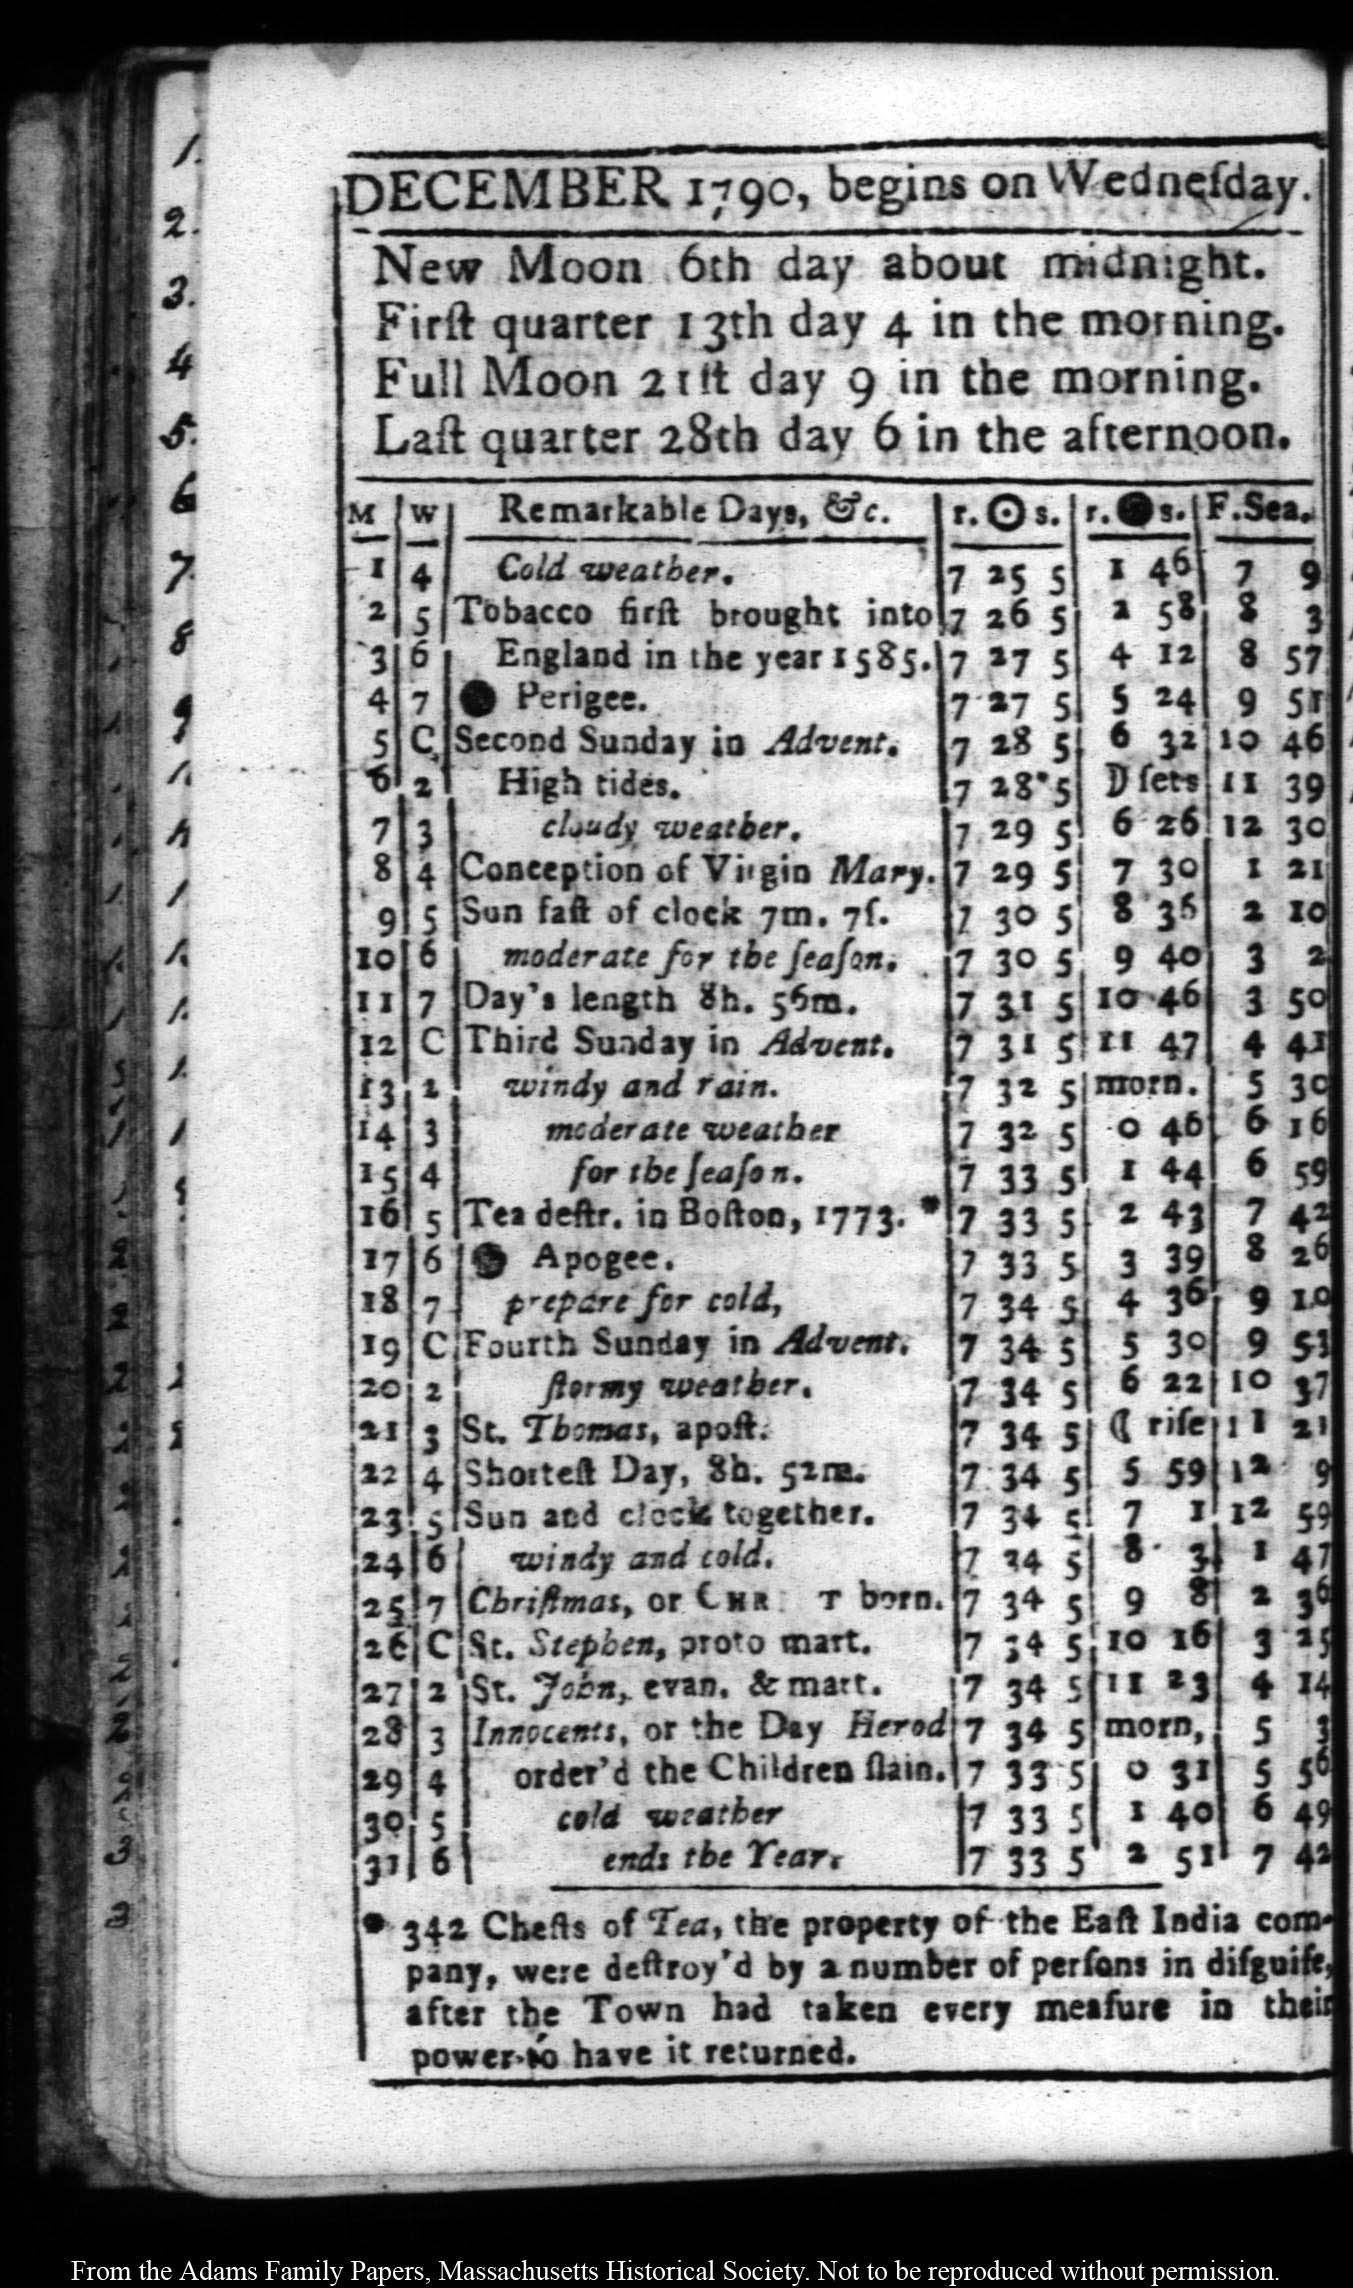 DECEMBER 1790, begins on Wedneſday.
New Moon 6th day about midnight.
Firſt quarter 13th day 4 in the morning.
Full Moon 21ſt day 9 in the morning.
Laſt quarter 28th day 6 in the afternoon.
M W Remarkable Days, &c. r. ☉ s. r. ● s. F. Sea.
1 4 Cold weather. 7 25 5 1 46 7 9
2 5 Tobacco firſt brought into 7 26 5 2 58 8 3
3 6 England in the year 1585. 7 27 5 4 12 8 57
4 7 ● Perigee. 7 27 5 5 24 9 51
5 C Second Sunday in Advent. 7 28 5 6 32 10 46
6 2 High tides. 7 28 5 ☽ ſets 11 39
7 3 cloudy weather. 7 29 5 6 26 12 30
8 4 Conception of Virgin Mary. 7 29 5 7 30 1 21
9 5 Sun faſt of clock 7m. 7ſ. 7 30 5 8 36 2 10
10 6 moderate for the ſeaſon. 7 30 5 9 40 3 2
11 7 Day's length 8h. 56m. 7 31 5 10 46 3 50
12 C Third Sunday in Advent. 7 31 5 11 47 4 41
13 2 windy and rain. 7 32 5 morn. 5 30
14 3 moderate weather 7 32 5 0 46 6 16
15 4 for the ſeaſon. 7 33 5 1 44 6 59
16 5 Tea deſtr. in Boſton, 1773. * 7 33 5 2 43 7 42
17 6 ● Apogee. 7 33 5 3 39 8 26
18 7 prepare for cold, 7 34 5 4 36 9 10
19 C Fourth Sunday in Advent. 7 34 5 5 30 9 53
20 2 ſtormy weather. 7 34 5 6 22 10 37
21 3 St. Thomas, apoſt. 7 34 5 ☾ riſe 11 21
22 4 Shorteſt Day, 8h. 52m. 7 34 5 5 59 12 9
23 5 Sun and clock together. 7 34 5 7 1 12 59
24 6 windy and cold. 7 34 5 8 3 1 47
25 7 Chriſtmas, or CHR T born. 7 34 5 9 8 2 36
26 C St. Stephen, proto mart. 7 34 5 10 16 3 25
27 2 St. John, evan. & mart. 7 34 5 11 23 4 14
28 3 Innocents, or the Day Herod 7 34 5 morn, 5 3
29 4 order'd the Children ſlain. 7 33 5 0 31 5 56
30 5 cold weather 7 33 5 1 40 6 49
31 6 ends the Year. 7 33 5 2 51 7 42
* 342 Cheſts of Tea, the property of the Eaſt India com-
pany, were deſtroy'd by a number of perſons in diſguiſe,
after the Town had taken every meaſure in their
power to have it returned.
1.
2.
3.
4
5.
6
7
8
9
From the Adams Family Papers, Massachusetts Historical Society. Not to be reproduced without permission.